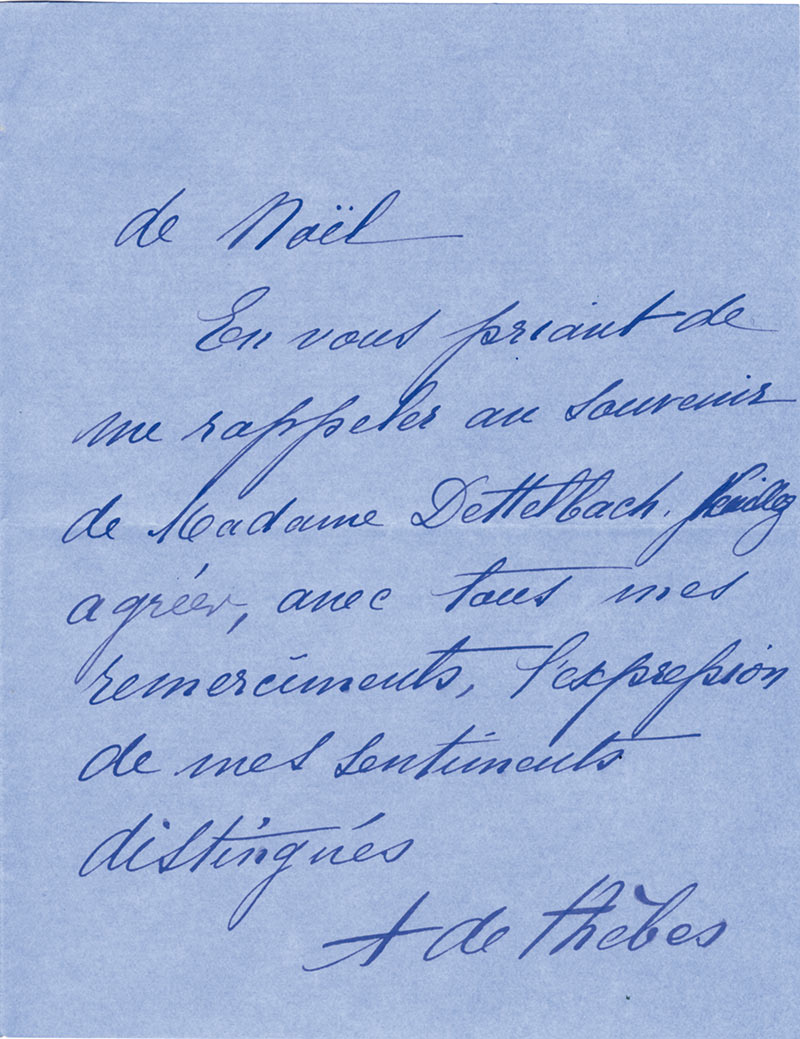 de Noël
En vous priant de
me rappeler au souvenir
de Madame Dettelbach. Veuillez
agréer, avec tous mes
remerciments, l'expression
de mes sentiments
distingués
A de Thèbes